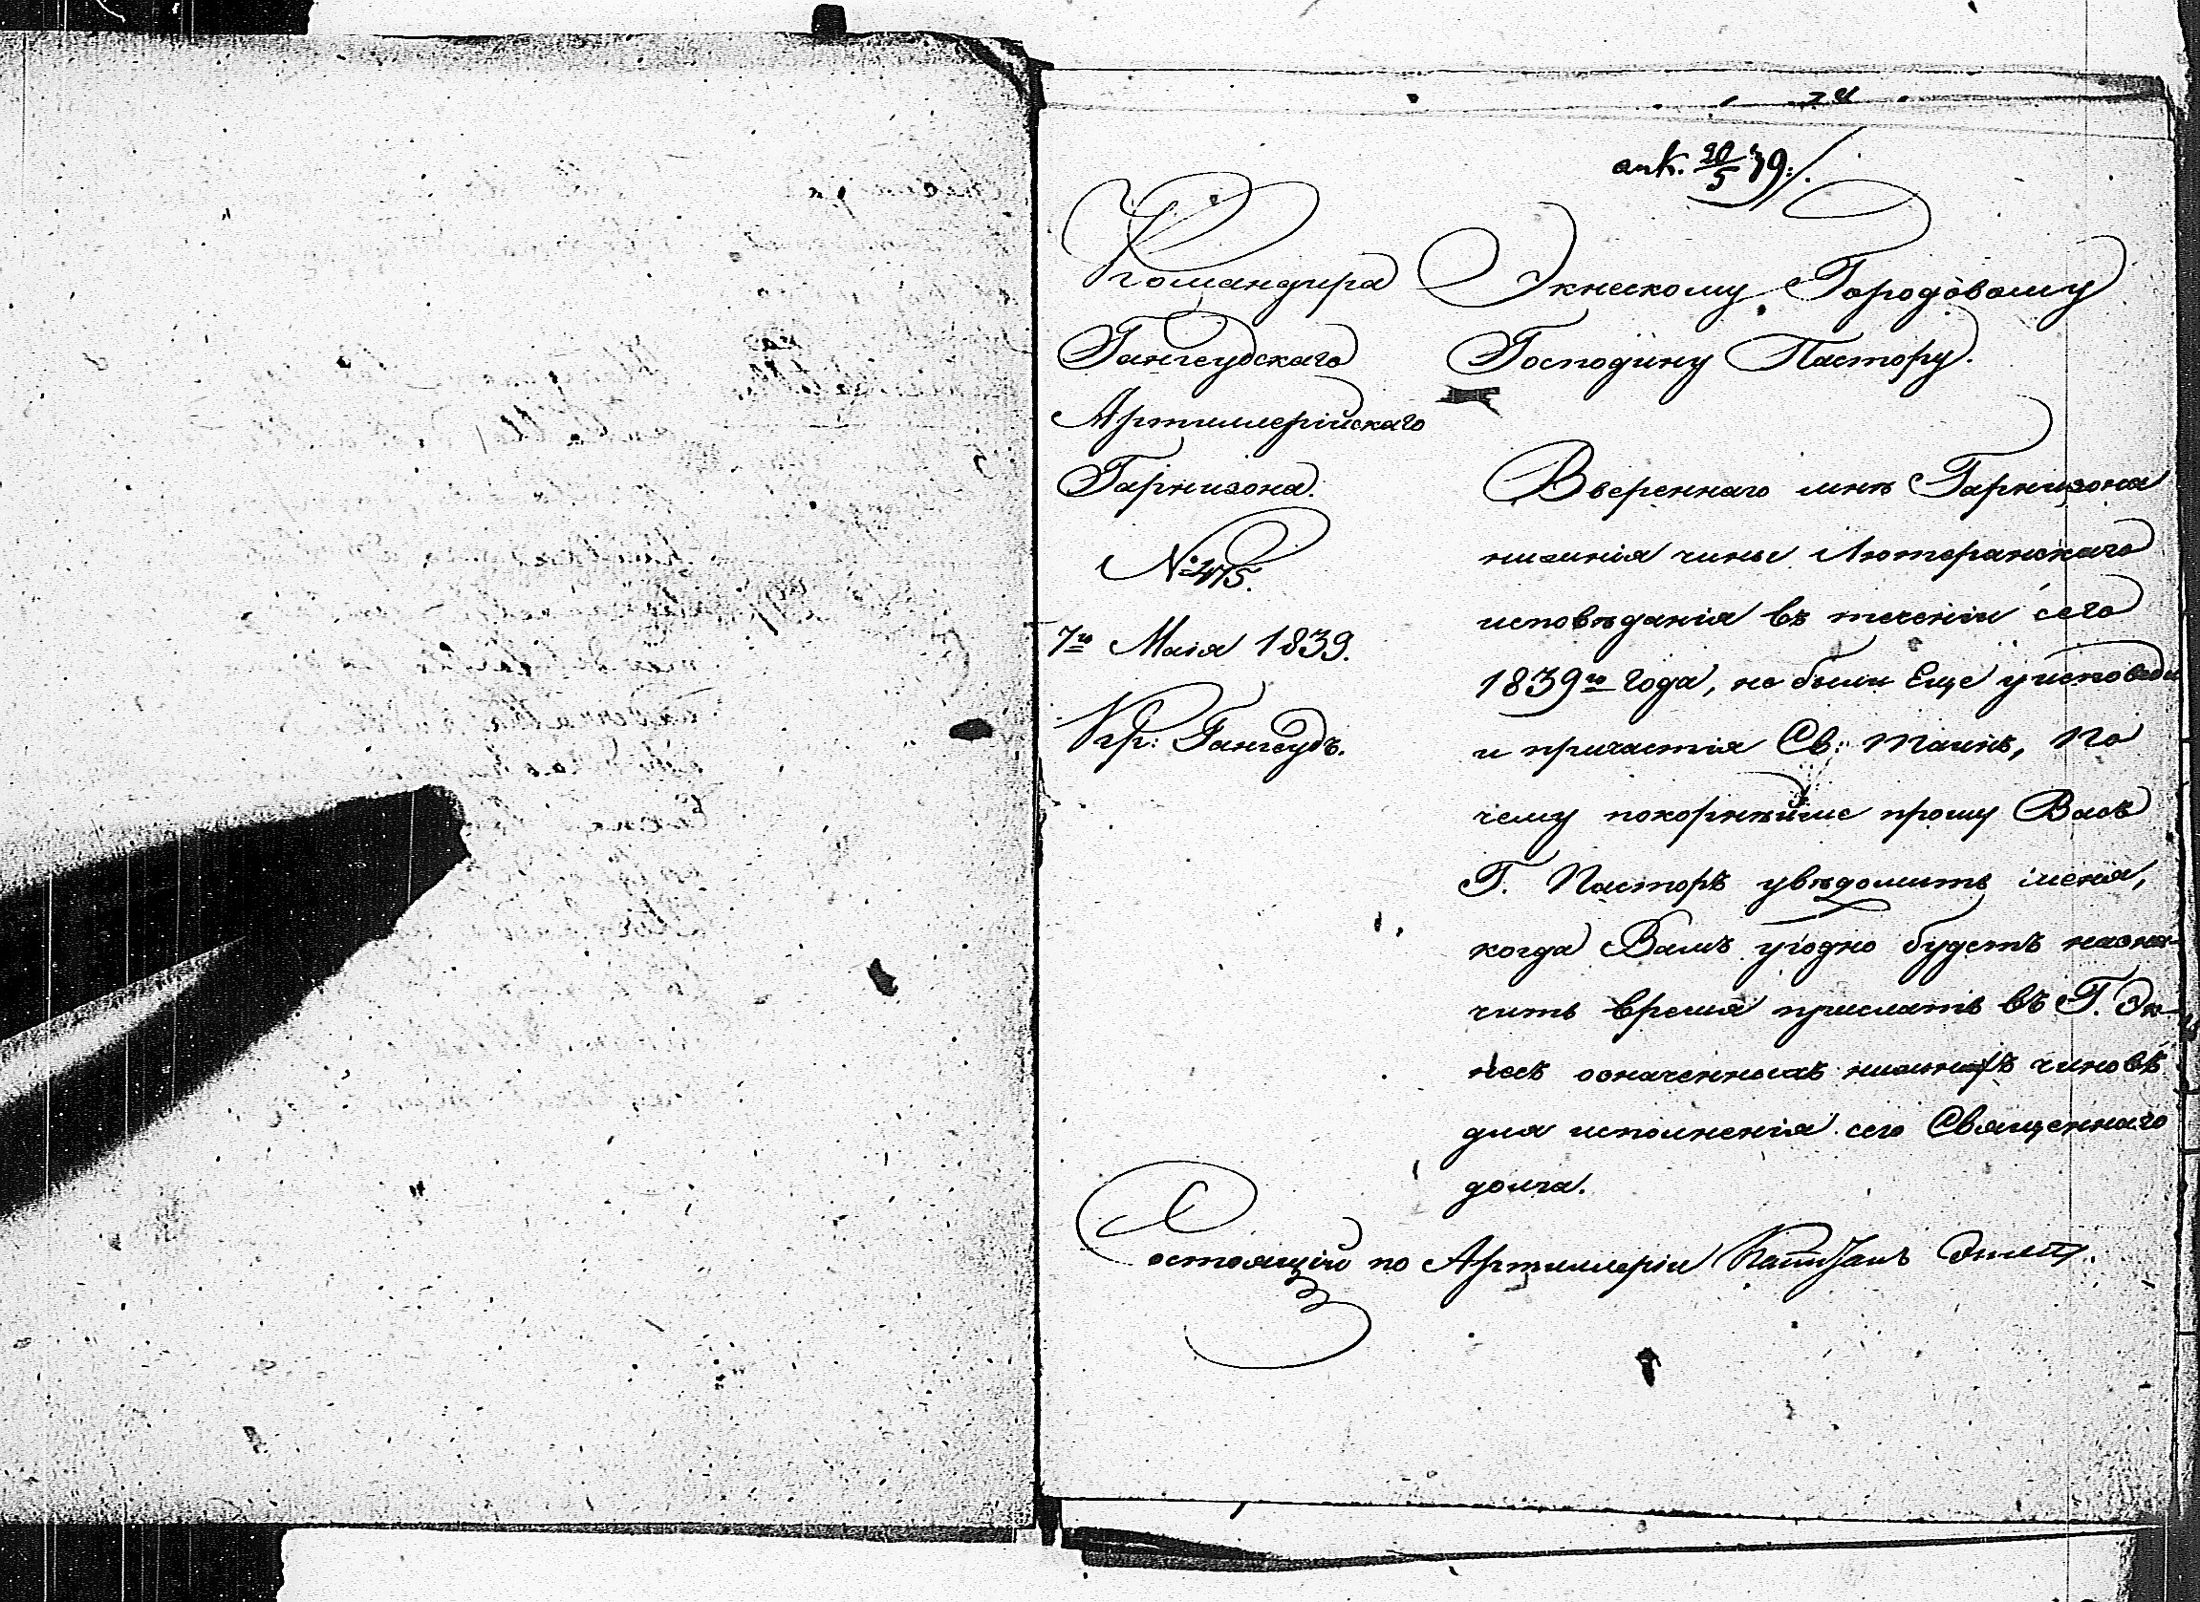 ank. 20/5 39./.
Командира
Гангеудскаго
Артиллерійскаго
Гарнизона.
№ 475.
7го Маія 1839.
Кр: Гангеудъ.
Экнескому Городовому
Господину Пастору.
Ввереннаго мнѣ Гарнизона
нижнія чины Лютеранскаго
исповѣданія въ теченіи сего
1839го года, не были еще у исповеди
и причастія Св: таинъ, По
чему покорнѣйше прошу Васъ
Г. Пасторъ увѣдомить меня,
когда Вамъ угодно будетъ назна-
чить время прислать въ Г. Эк-
несъ означенныхъ нижнихъ чиновъ
для исполненія сего Священнаго
долга.
Состоящій по Артиллеріи Капитанъ